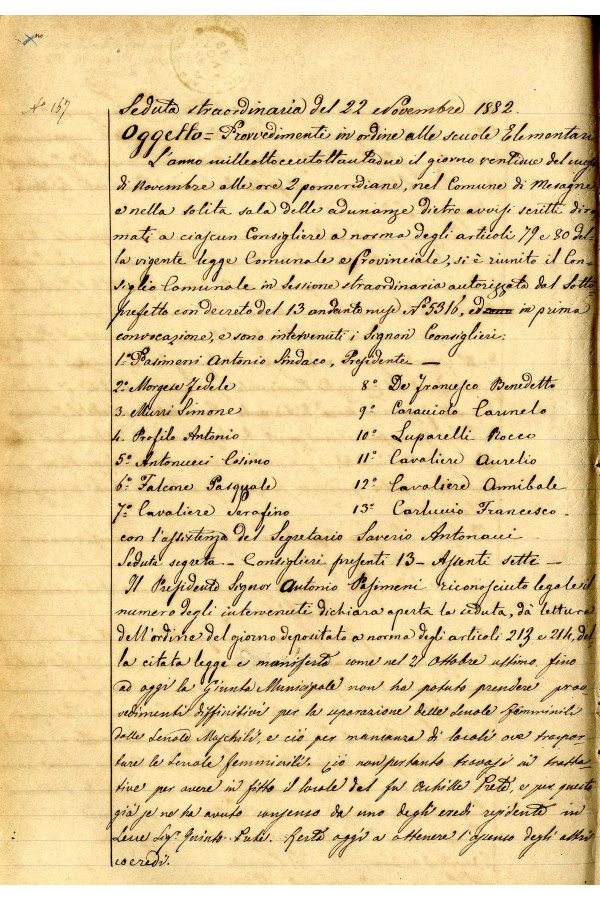 N° 167
Seduta straordinaria del 22 Novembre 1882.
Oggetto = Provvedimenti in ordine alle scuole Elementari
L'anno milleottocentottantadue il giorno ventidue del mese
di Novembre alle ore 2 pomeridiane, nel Comune di Mesagne
e nella solita sala delle adunanze dietro avvisi scritti dira-
mati a ciascun Consigliere a norma degli articoli 79 e 80 del-
la vigente legge Comunale e Provinciale, si è riunito il Con-
siglio Comunale in sessione straordinaria autorizzata dal Sotto-
prefetto con decreto del 13 andante mese N° 5316, ed in prima
convocazione, e sono intervenuti i Signori Consiglieri:
1° Pasimeni Antonio Sindaco, Presidente —
2° Morgese Fedele
8° De Francesco Benedetto
3. Murri Simone
9° Caraviolo Carmelo
4. Profilo Antonio
10° Luparelli Rocco
5° Antonucci Cosimo
11° Cavaliere Aurelio
6° Falcone Pasquale
12° Cavaliere Annibale
7° Cavaliere Serafino
13° Carluccio Francesco.
con l'assistenza del Segretario Saverio Antonucci
Seduta segreta — Consiglieri presenti 13 — Assenti sette —
Il Presidente Signor Antonio Pasimeni riconosciuto legale il
numero degli intervenuti dichiara aperta la seduta, dà lettura
dell'ordine del giorno depositato a norma degli articoli 213 e 214, del-
la citata legge e manifesta come nel 21 Ottobre ultimo fino
ad oggi la Giunta Municipale non ha potuto prendere prov-
vedimenti diffinitivi per la separazione delle Scuole Femminili
dalle Scuole Maschili, e ciò per mancanza di locali ove traspor-
tare le Scuole femminili. Ciò nonpertanto trovasi in tratta-
tive per avere in fitto il locale del fu Achille Prete, e per questo
già se ne ha avuto consenso da uno degli eredi residente in
Lecce Sigr. Quinto Prete. Resta oggi a ottenere l'assenso degli altri
coeredi.